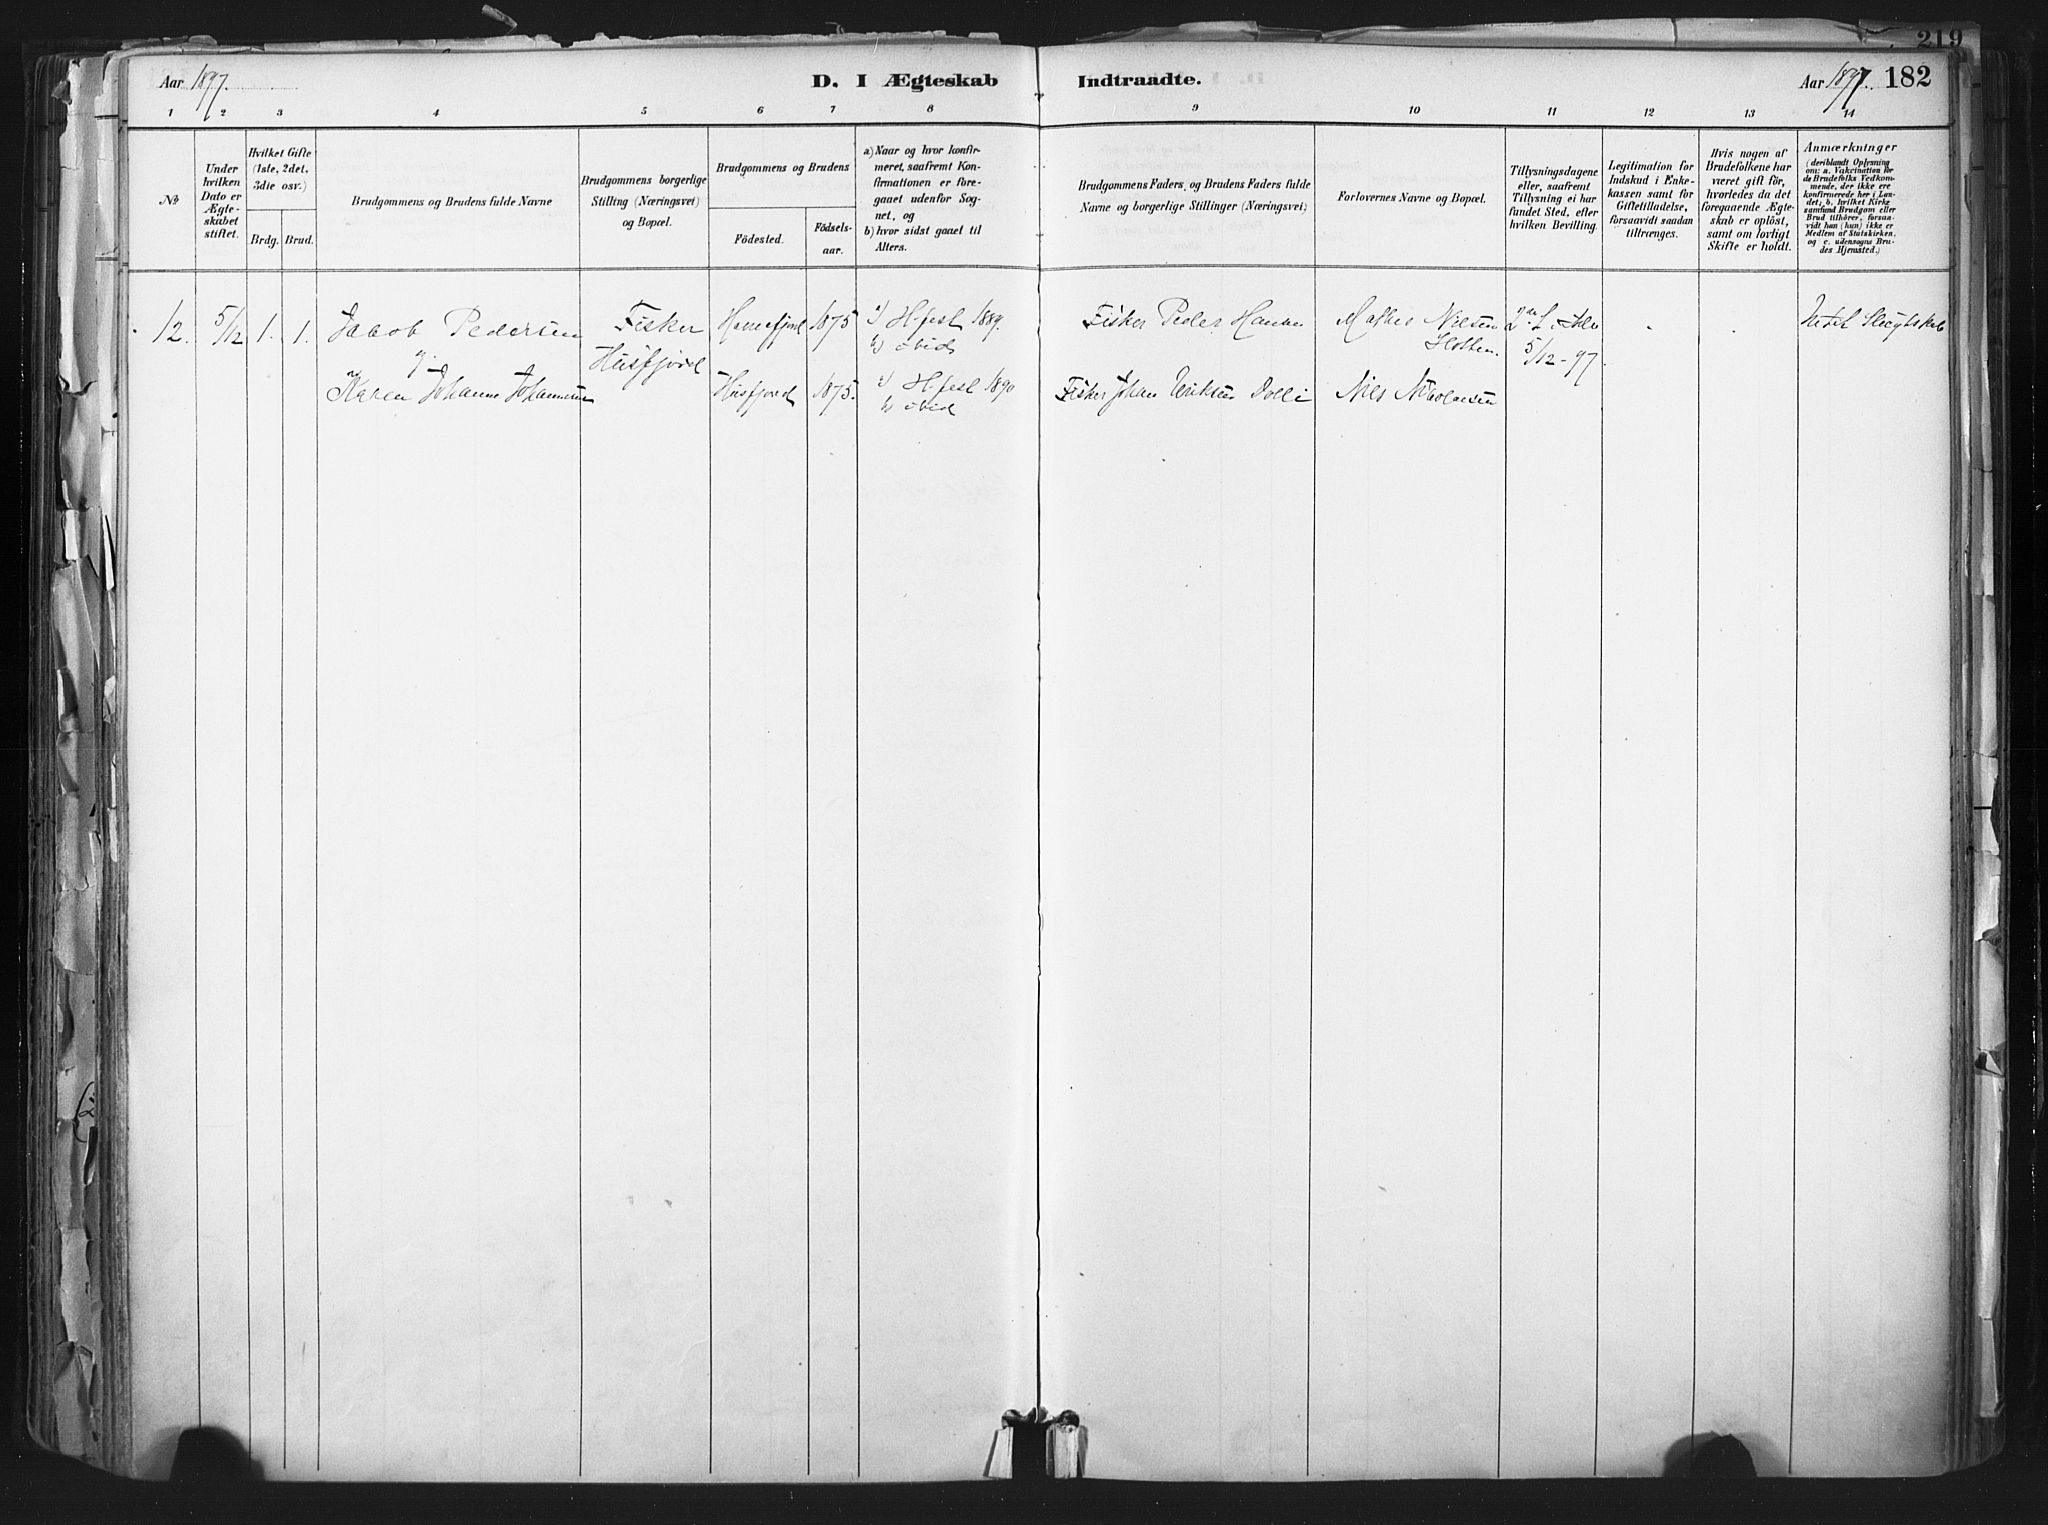 219
Aar 1897.
D. I Ægteskab
Indtraadte.
Aar 1897. 182
1 2 3 4 5 6 7 8 9 10 11 12 13 14
№
Under
hvilken
Dato er
Ægte-
skabet
stiftet.
Hvilket Gifte
(1ste, 2det,
3die osv.)
Brdg. Brud.
Brudgommens og Brudens fulde Navne
Brudgommens borgerlige
Stilling (Næringsvei)
og Bopæl.
Brudgommens og Brudens
Födested.
Födsels-
aar.
a) Naar og hvor konfir-
meret, saafremt Kon-
firmationen er fore-
gaaet udenfor Sog-
net, og
b) hvor sidst gaaet til
Alters.
Brudgommens Faders, og Brudens Faders fulde
Navne og borgerlige Stillinger (Næringsvei)
Forlovernes Navne og Bopæl.
Tillysningsdagene
eller, saafremt
Tillysning ei har
fundet Sted, efter
hvilken Bevilling.
Legitimation for
Indskud i Enke-
kassen samt for
Giftetilladelse,
forsaavidt saadan
tiltrænges.
Hvis nogen af
Brudefolkene har
været gift för,
hvorledes da det
foregaaende Ægte-
skab er oplöst,
samt om lovligt
Skifte er holdt.
Anmærkninger
(deriblandt Oplysning
om: a. Vakcination for
de Brudefolks Vedkom-
mende, der ikke ere
konfirmerede her i Lan-
det; b. hvilket Kirke
samfund Brudgom eller
Brud tilhörer, forsaa-
vidt han (hun) ikke er
Medlem af Statskirken,
og c. udensogns Bru-
des Hjemsted.)
12. 5/12 1. 1. Jacob Pedersen Fisker 1875 a) H-fest 1889. Fisker Peder Hansen Nielsen
b) ibid
g. Husfjord 5/12-97.
Karen Johanne Johannesen Husfjord 1875. a) H-fest 1890 Fisker Johan Nils Nicolaisen
b) ibid